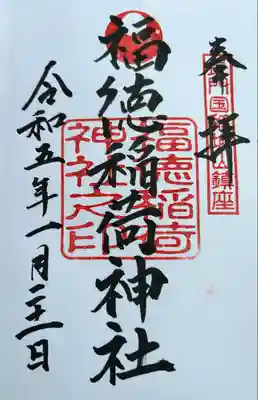 奉拝
福徳稲荷神社
令和五年一月二十一日
福徳稲荷
神社之印
国
山鎮座